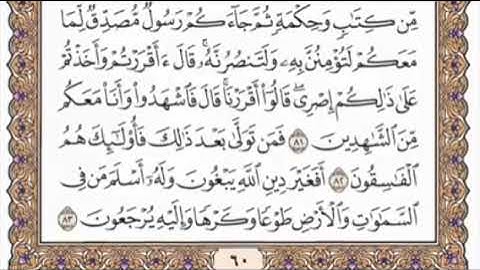 مِّن كِتَٰبٍ وَحِكْمَةٍ ثُمَّ جَآءَكُمْ رَسُولٌ مُّصَدِّقٌ لِّمَا
مَعَكُمْ لَتُؤْمِنُنَّ بِهِۦ وَلَتَنصُرُنَّهُۥ ۚ قَالَ ءَأَقْرَرْتُمْ وَأَخَذْتُمْ
عَلَىٰ ذَٰلِكُمْ إِصْرِى ۖ قَالُوٓا۟ أَقْرَرْنَا ۚ قَالَ فَٱشْهَدُوا۟ وَأَنَا۠ مَعَكُم
مِّنَ ٱلشَّٰهِدِينَ ٨١ فَمَن تَوَلَّىٰ بَعْدَ ذَٰلِكَ فَأُو۟لَٰٓئِكَ هُمُ
ٱلْفَٰسِقُونَ ٨٢ أَفَغَيْرَ دِينِ ٱللَّهِ يَبْغُونَ وَلَهُۥٓ أَسْلَمَ مَن فِى
ٱلسَّمَٰوَٰتِ وَٱلْأَرْضِ طَوْعًا وَكَرْهًا وَإِلَيْهِ يُرْجَعُونَ ٨٣
٦٠